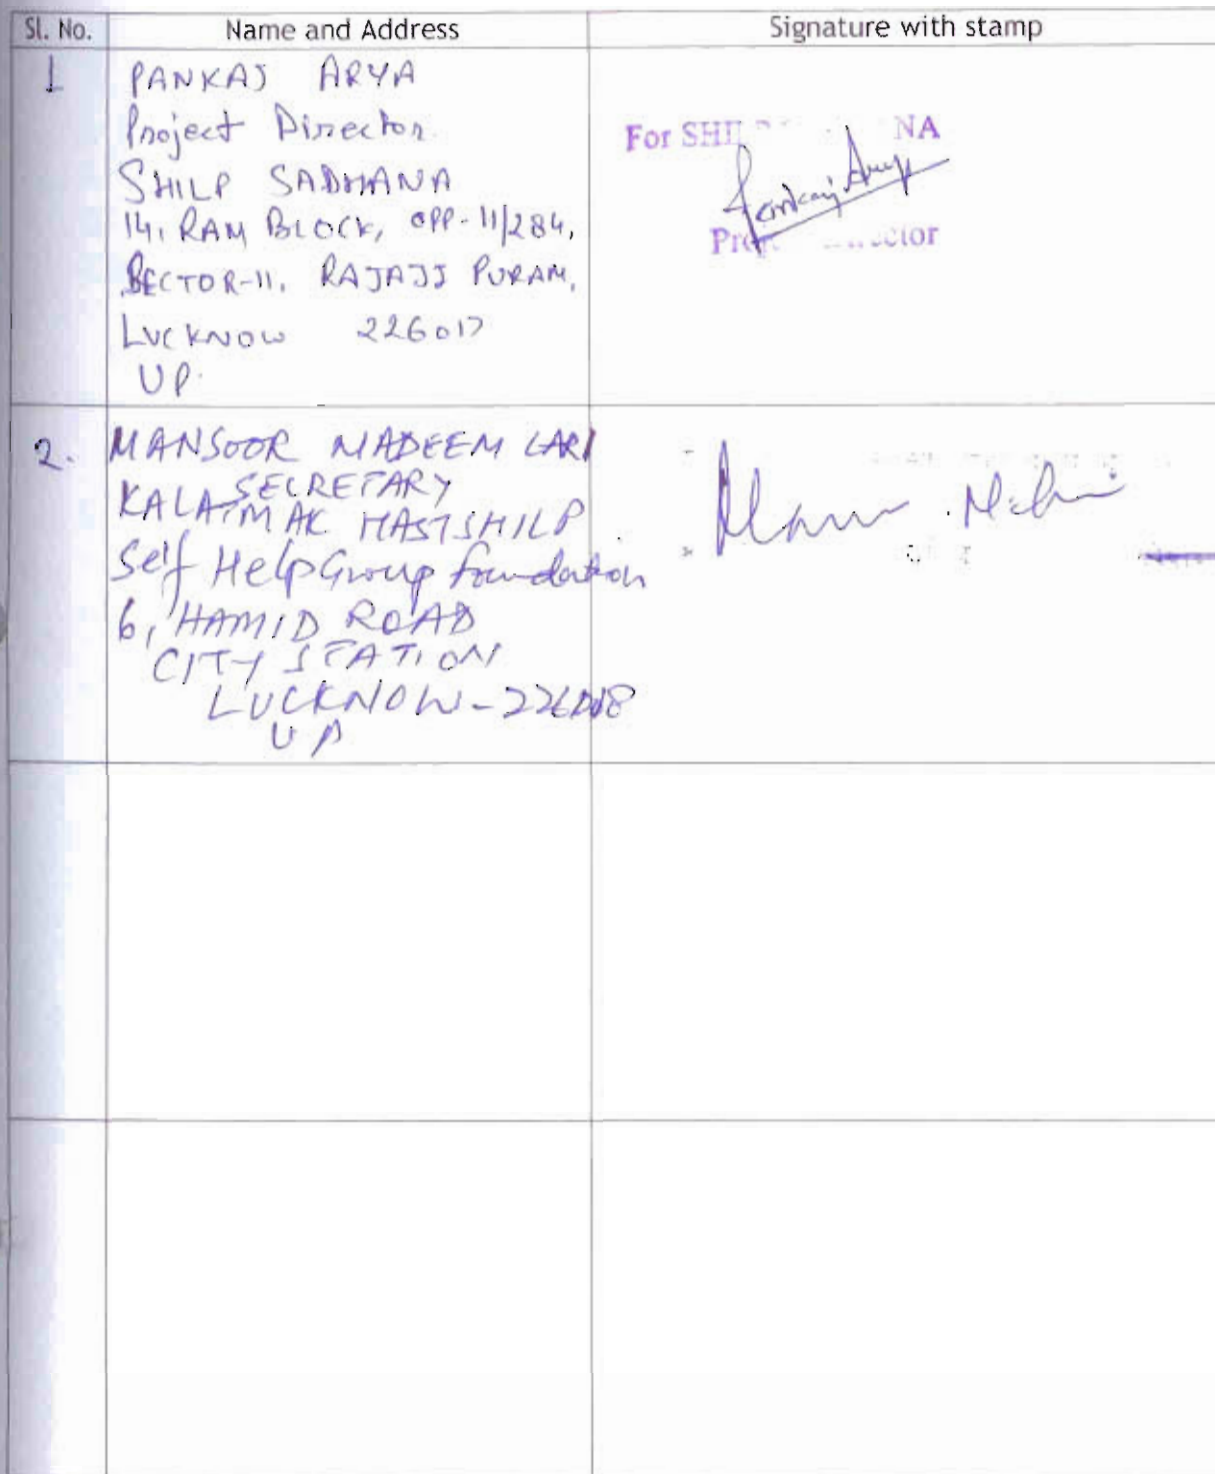 Sl. No. Name and Address Signature with stamp
1 PANKAJ ARYA
Project Director
SHILP SADHANA
14, RAM BLOCK, OPP-11/284,
SECTOR-11, RAJAJI PURAM,
LUCKNOW 226017
UP.
For SHIL NA
Pankaj Arya
Pro ector
2. MANSOOR NADEEM LARI
SECRETARY
KALATMAK HASTSHILP
Self Help Group foundation
6, HAMID ROAD
CITY STATION
LUCKNOW-226018
UP